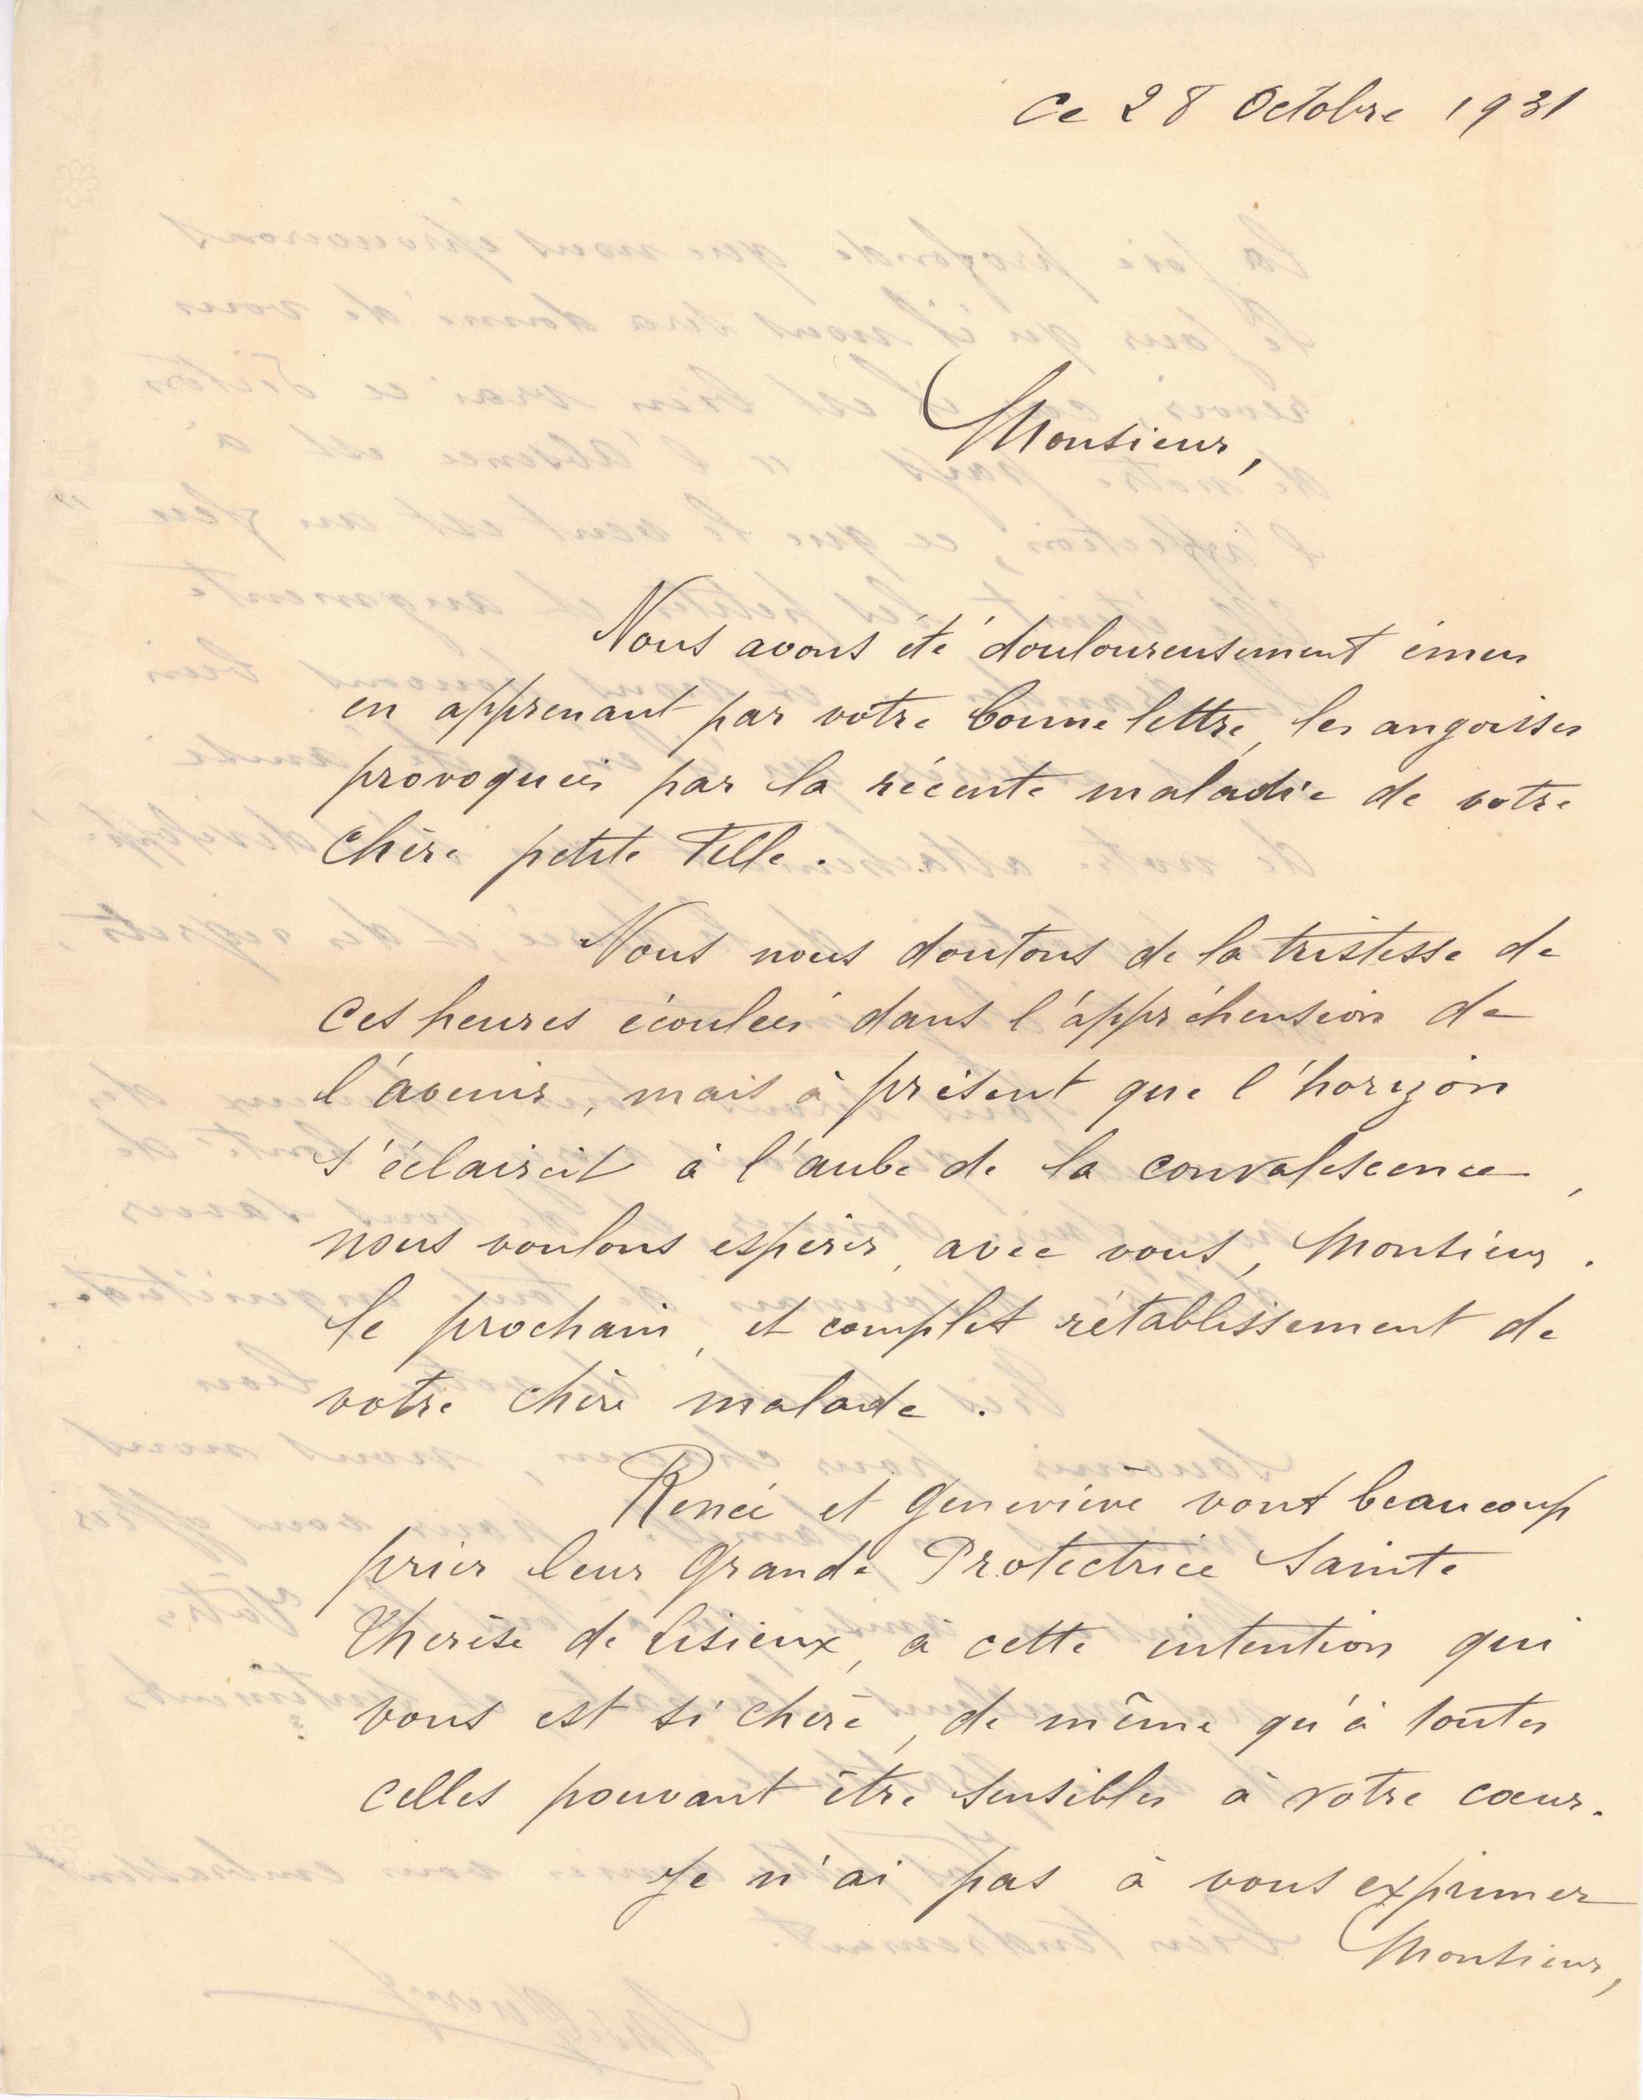 Ce 28 Octobre 1931
Monsieur,
Nous avons été douloureusement émus
en apprenant par votre bonne lettre, les angoisses
provoquées par la récente maladie de votre
chère petite Fille.
Nous nous doutons de la tristesse de
ces heures écoulées dans l'appréhension de
l'avenir, mais à présent que l'horizon
s'éclaircit à l'aube de la convalescence,
nous voulons espérer, avec vous, Monsieur.
le prochain, et complet rétablissement de
votre chère malade.
Renée et Geneviève vont beaucoup
prier leur Grande Protectrice Sainte
Thérèse de Lisieux, à cette intention qui
vous est si chère, de même qu'à toutes
celles pouvant être sensibles à votre cœur.
Je n'ai pas à vous exprimer
Monsieur,